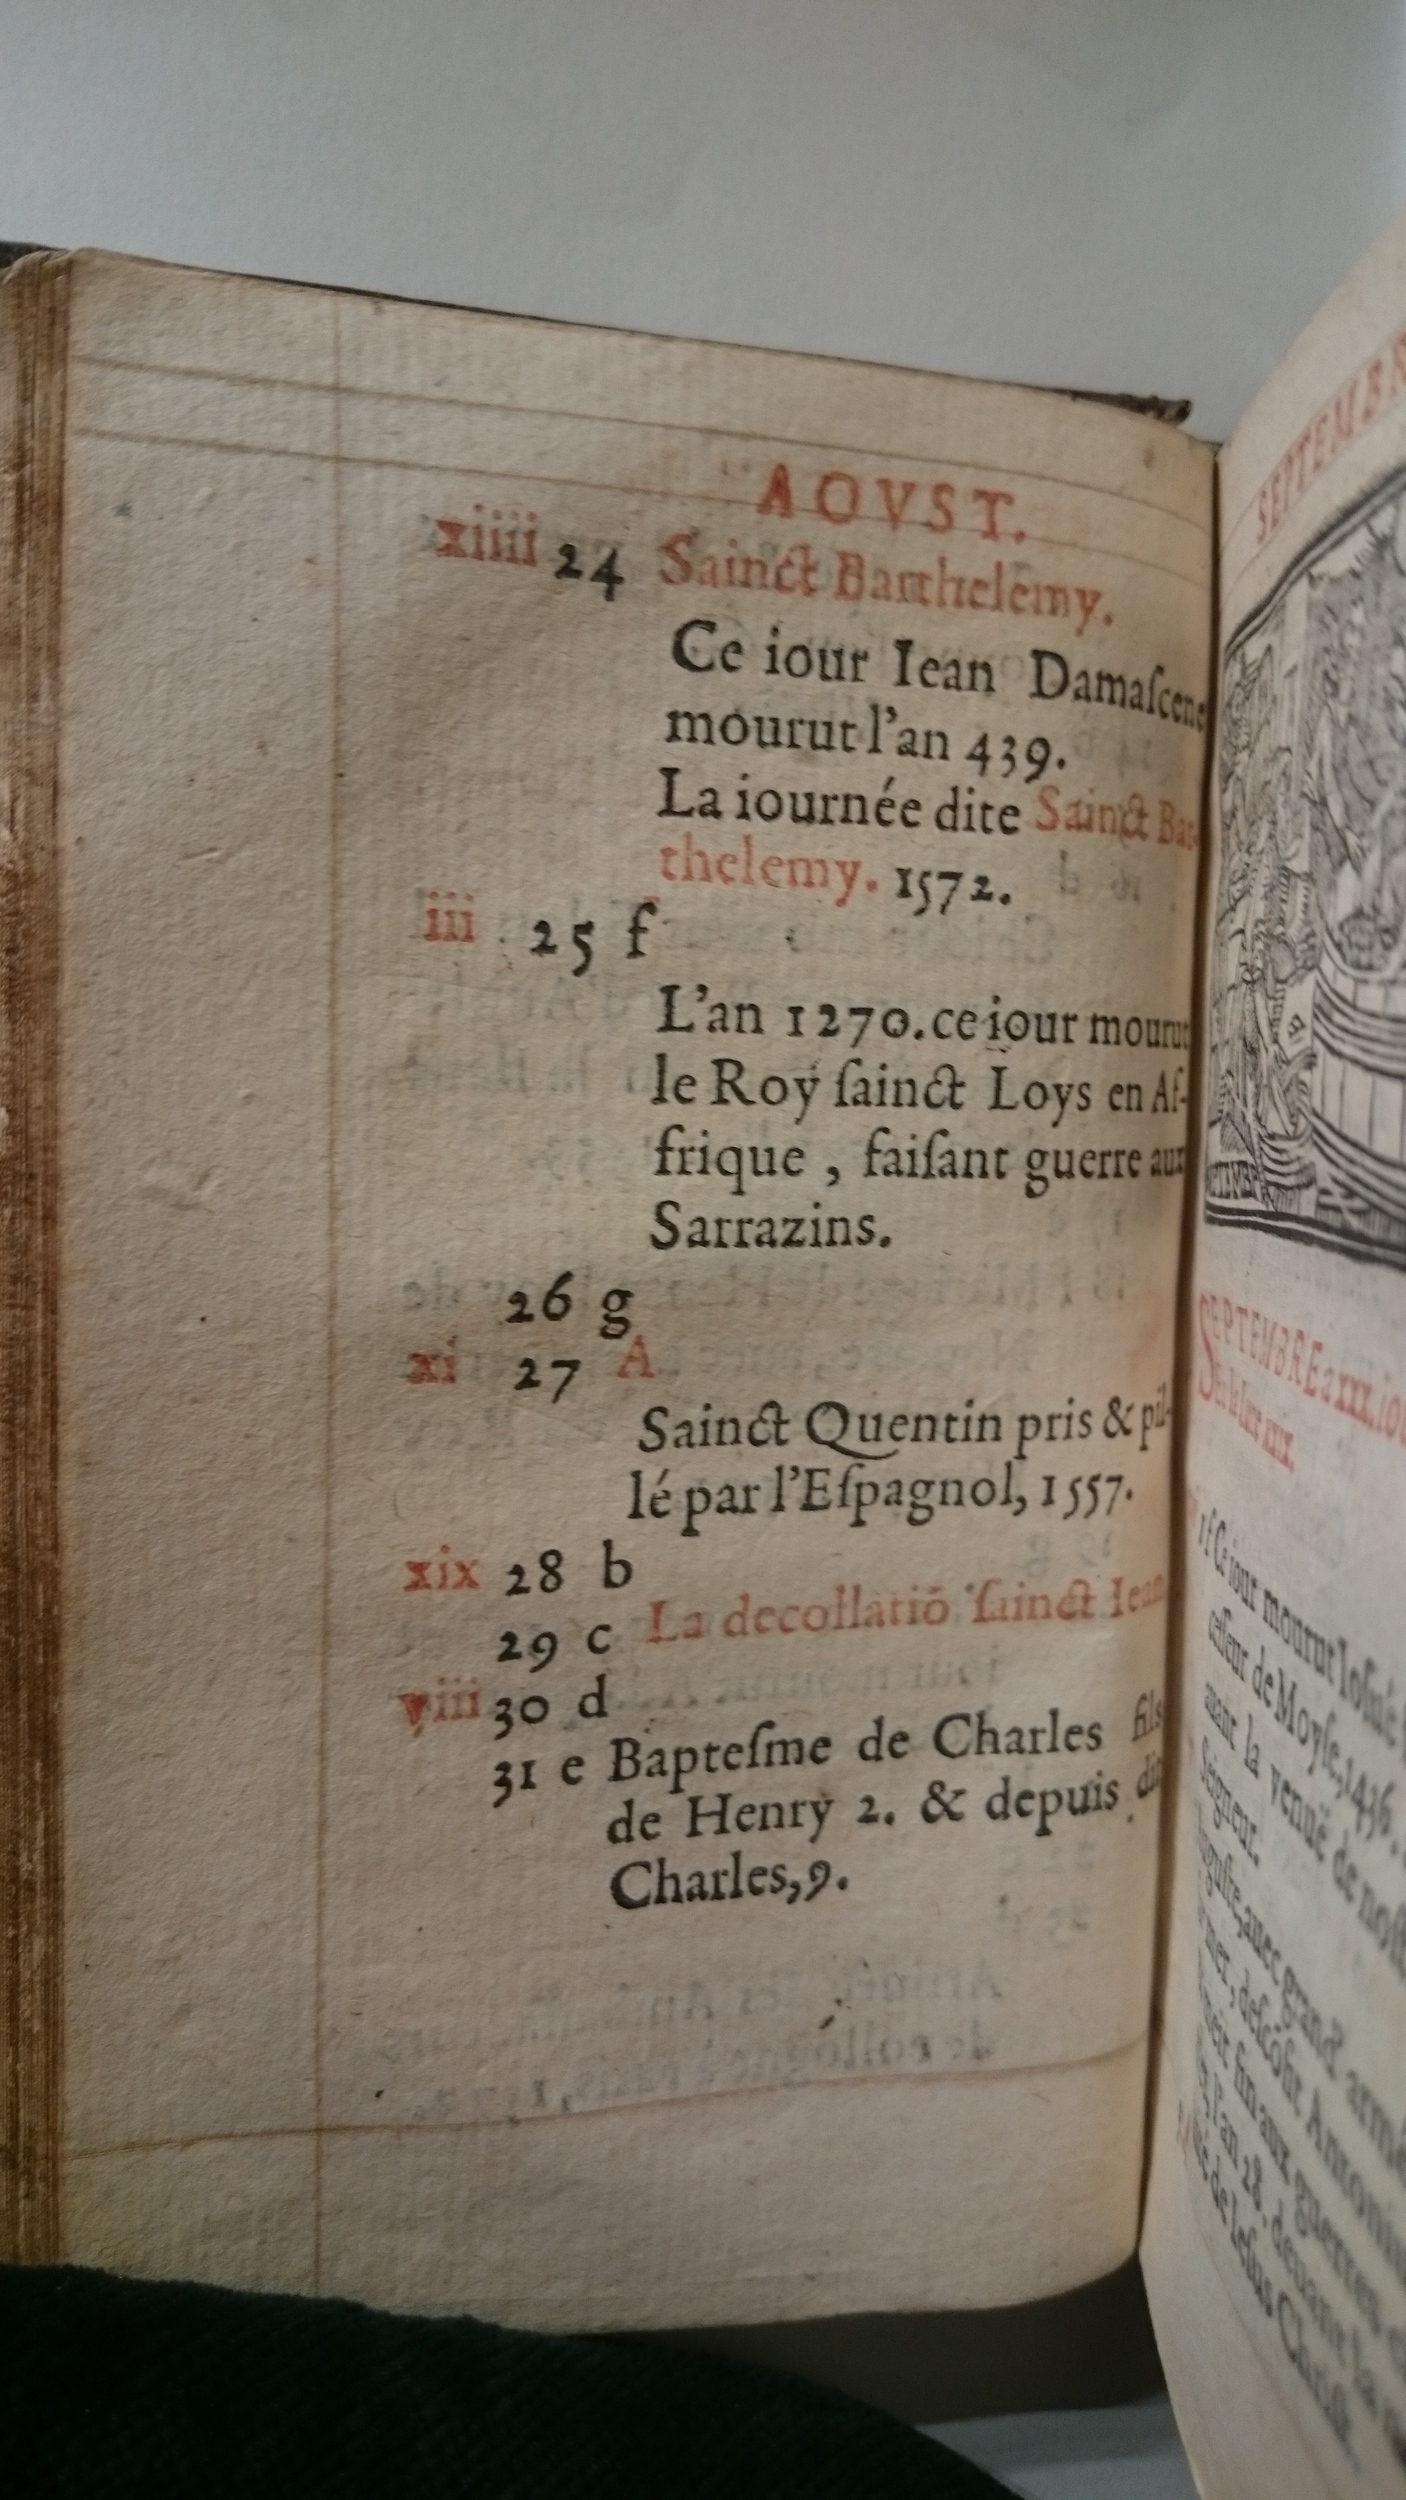 AOVST.
xiiii 24 Sainct Barthelemy.
Ce iour Iean Damaſcene
mourut l'an 439.
La iournée dite Sainct Bar-
thelemy. 1572.
iii 25 f
L'an 1270. ce iour mourut
le Roy ſainct Loys en Af-
frique , faiſant guerre aux
Sarrazins.
26 g
xi 27 A
Sainct Quentin pris & pil-
lé par l'Eſpagnol, 1557.
xix 28 b
29 c La decollatiō ſainct Iean
viii 30 d
31 e Bapteſme de Charles fils
de Henry 2. & depuis dit
Charles, 9.
SEPTEMBR
SEPTEMBRE a xxx. iou
1 f Ce iour mourut Ioſué
ceſſeur de Moyſe, 1436.
uant la venuë de noſt
Seigneur.
auec grand' armé
deſcōfit Antoni
fin aux guerres
l'an 28. deuant la
de Ieſus Chriſt.